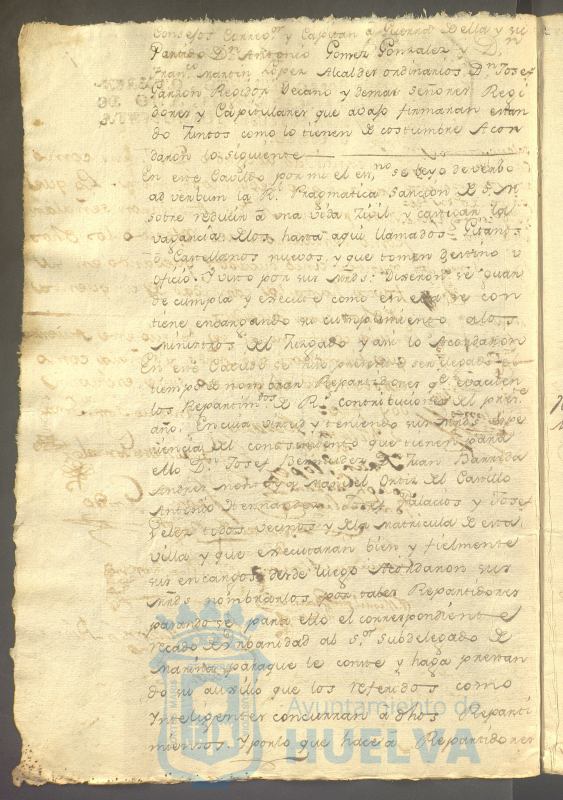 Consejos Correg.or y Capitan a Guerra Della y su
Partido D.n Antonio Gomez Gonzalez y D.n
Fran.co Martin Lopez Alcaldes ordinarios, D.n Josef
Garzon Regidor Decano y demas señores Regi
dores y Capitulares que avajo firmaran estan
do juntos como lo tienen de costumbre Acor
daron lo siguiente
En este Cavildo por mi el en.no se leyo de verbo
ad verbum la R.l Pragmatica Sancion de S. M
sobre reducir a una vida Civil y castigar la
vagancia de los hasta aqui llamados Gitanos
o Castellanos nuevos, y que tomen destino u
oficio. Y visto por sus mrds. Dixeron se guar
de cumpla y execute como en ella se con
tiene encargando su cumplimiento a los
Ministros del Juzgado y asi lo Acordaron
En este Cavildo se hizo presente ser llegado el
tiempo de nombrar Repartidores q.e evacuen
los Repartim.tos de R.s contribuciones del pres.te
año. En cuia virtud y teniendo sus mrds
del conocimiento que tienen para
ello D.n Josef Bermudez, Juan Barreda
Andres Montero, Manuel Ortiz del Castillo
Antonio Palacios y Josef
Velez todos vecinos y de la Matricula de esta
villa y que executaran bien y fielmente
sus encargos desde luego Acordaron sus
mrds nombrarlos por tales Repartidores
pasandose para ello el correspondiente
recado de urbanidad al S.or Subdelegado de
Marina paraque le conste y haga prestan
do su auxilio que los referidos como
Inteligentes concurran a dhos Reparti
mientos. Y por lo que hace a Repartidores
Ayuntamiento de
HUELVA